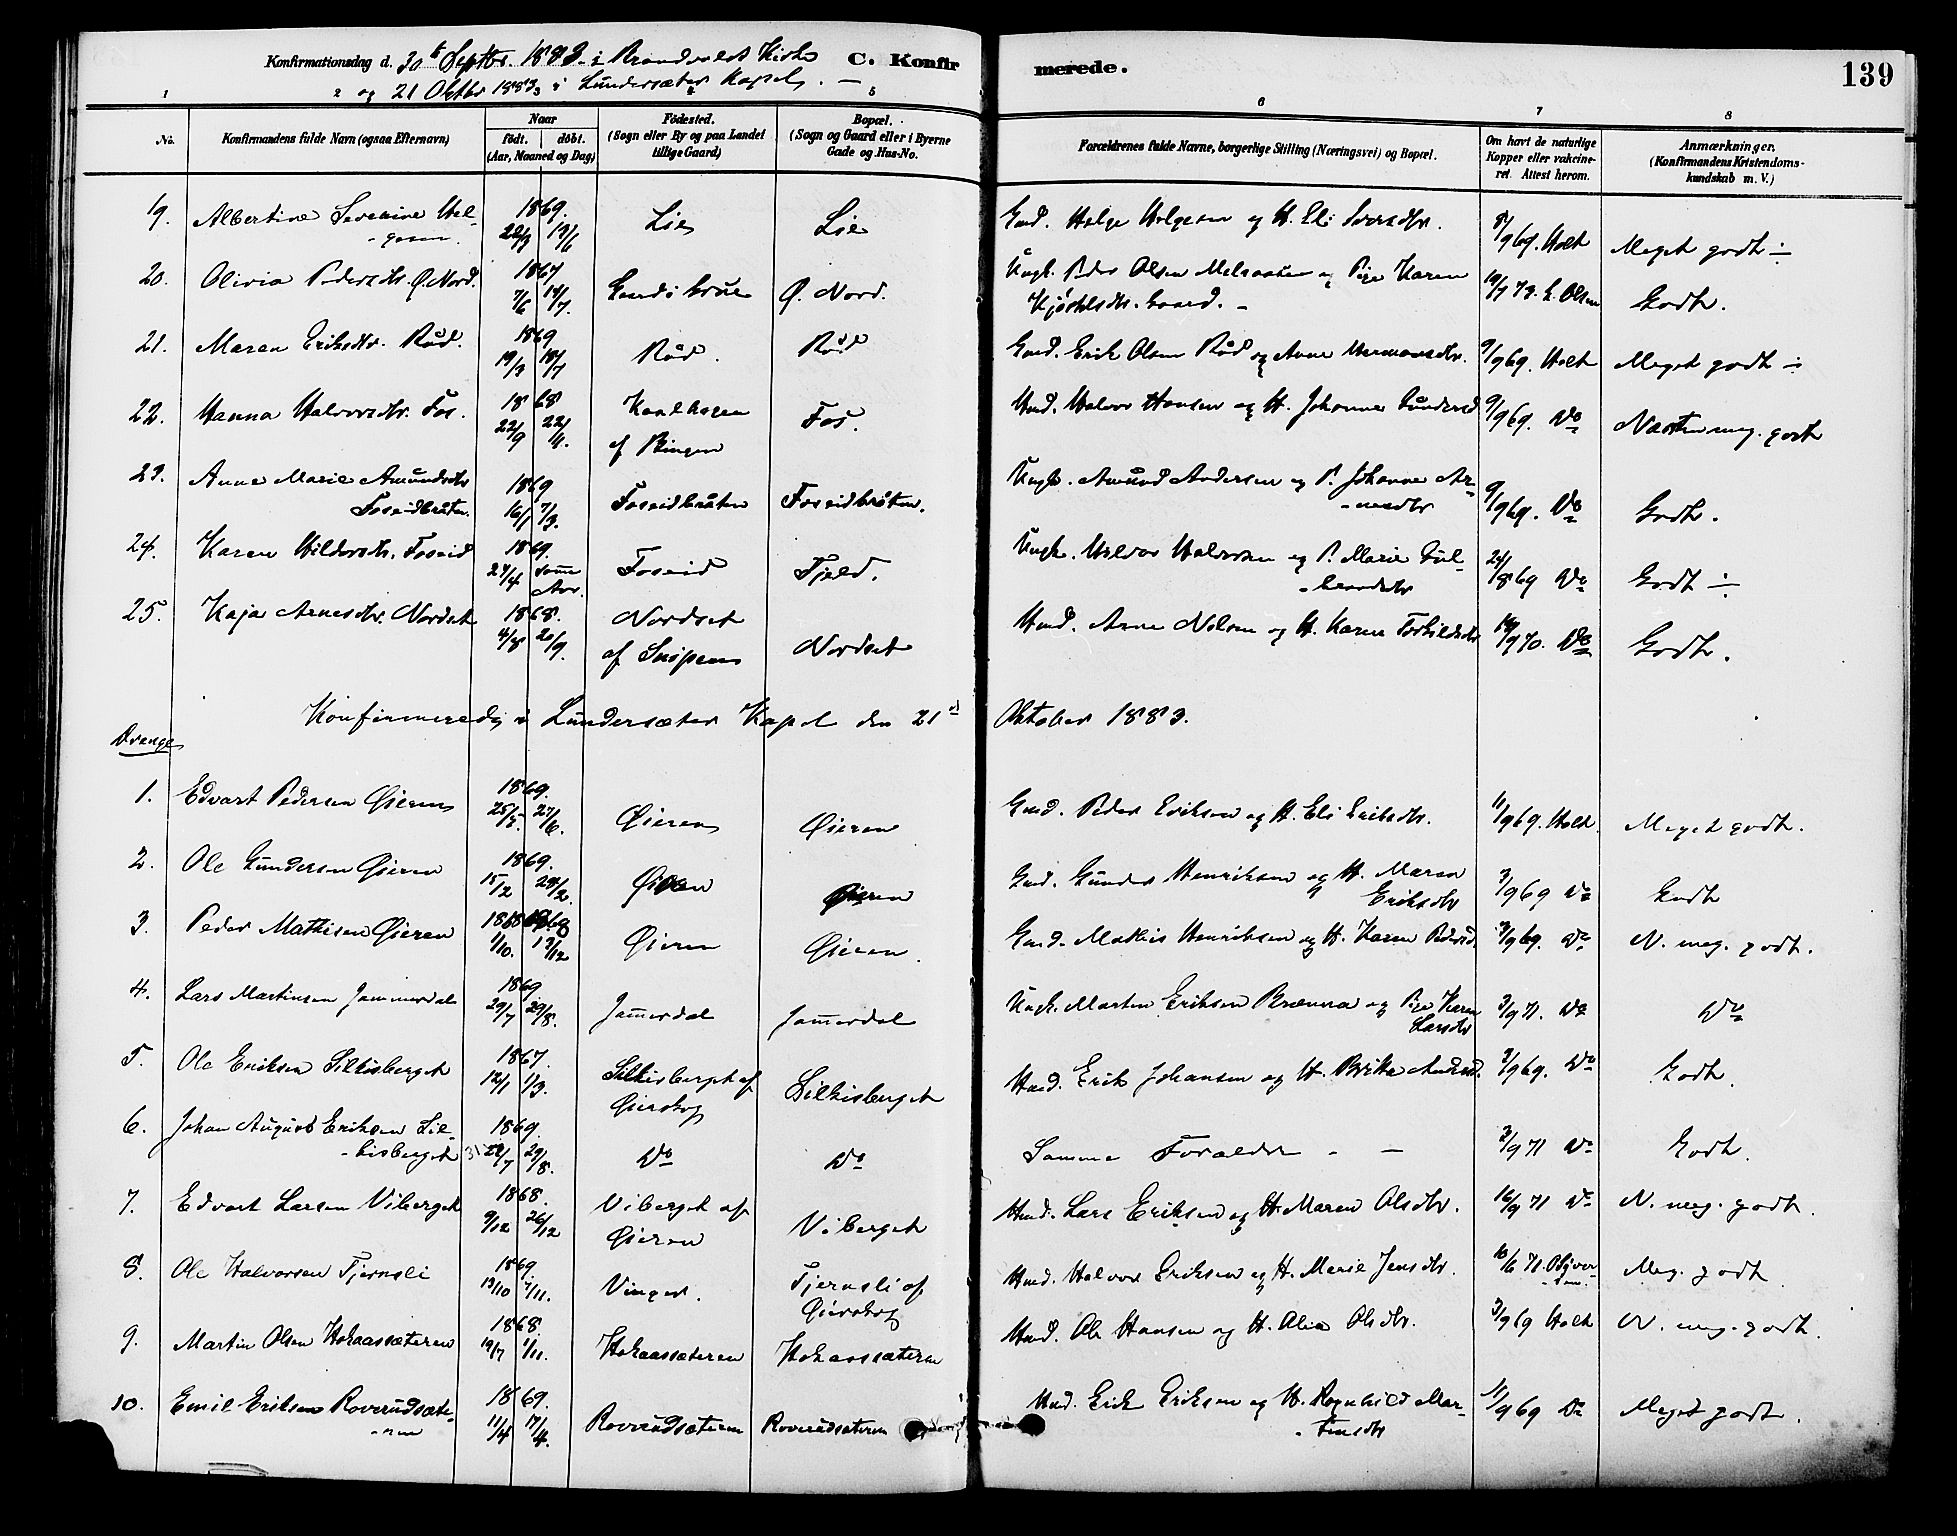 Konfirmationsdag d. 30te Septbr. 1883 i Brandvold Kirke C. Konfirmerede. 139
og 21 Oktbr 1883 i Lundersæter Kapel. —
1 2 3 4 5 6 7 8
No. Konfirmandens fulde Navn (ogsaa Efternavn) Naar födt. döbt. (Aar, Maaned og Dag) Födested. (Sogn eller By og paa Landet tillige Gaard) Bopæl. (Sogn og Gaard eller i Byerne Gade og Hus-No. Forældrenes fulde Navne, borgerlige Stilling (Næringsvei) og Bopæl. Om havt de naturlige Kopper eller vakcineret. Attest herom. Anmærkninger. (Konfirmandens Kristendomskundskab m. V.)
19. Albertine Severine Helgesen. 1869. 13/6 Lie Lie Gmd. Helge Helgesen og H. Eli 8/9 69. Holt Meget godt
20. Olivia Pedersdtr. Ø. Nord. 1867 7/6 14/7. Ø. Nord. Ungk. Peder Olsen og Pige Karen 73. Olsen Godt.
21. Maren Eriksdtr. Rød. 1869 19/3 18/7 Rød. Rød Gmd. Erik Olsen Rød og Anne Hermansdtr. 9/9 69. Holt Meget godt
22. Hanna Halvorsdtr. Fos. 1868 22/9 22/11. Kaalhagen af Bingen Fos. Hmd. Halvor Hansen og H. Johanne 9/9 69. Do Næsten meg. godt
23. Anne Marie Amundsdtr Foseidbråten. 1869 16/1 7/3. Foseidbråten Foseidbråten. Ungk. Amund Andersen og P. Johanne Arnesdtr 9/9 69. Do Godt.
24. Karen Hildorsdtr. Foseid 1869. 27/4 samme Aar. Foseid Fjeld. Ungk. Hildor Halvorsen og P. Marie Gulbrandsdtr 24/8 69 Do Godt
25. Kaja Arnesdtr. Nordset 1868. 4/8 20/9. Nordset af Nordset Hmd. Arne Nilsen og H. Karen Torkildsdtr 70. Do Godt.
Konfirmerede i Lundersæter Kapel den 21de Oktober 1883.
Drenge
1. Edvart Pedersen Øieren 1869. 25/5. 27/6. Øieren Øieren Gmd. Peder Eriksen og H. Eli Eriksdtr. 11/9 69. Holt. Meget godt.
2. Ole Gundersen Øieren 1869. 15/2 28/2. Øieren Øieren Gmd. Gunder Henriksen og H. Maren Eriksdtr 3/9 69 Do Godt
3. Peder Mathisen Øieren 1868 1/10. 13/12 Øieren Øieren. Gmd. Mathis Henriksen og H. Karen Pedersd. 3/9 69. Do N. meg. godt.
4. Lars Martinsen Jammerdal 1869 29/7 29/8. Jam̄erdal Jam̄erdal Ungk. Marten Eriksen Brænna og Pige Karen Larsdtr 3/9 71. Do Do
5. Ole Eriksen Silkisberget 1867. 12/1 1/3. Silkisberget af Øierskog Silkisberget Hmd. Erik Johansen og H. Berthe 3/9 69. Do Godt.
6. Johan August Eriksen Silkisberget 31 1869. 29/8. Do Do Samme Forældre - - 3/9 71 Do Godt.
7. Edvart Larsen Viberget 1868. 9/12 26/12 Viberget af Øieren Viberget Hmd. Lars Eriksen og H. Maren Olsdtr. 16/9 71 Do N. meg. godt.
8. Ole Halvorsen Tjernsli 1869 13/10 7/11. Vinger. Tjernsli af Øierskog Hmd. Halvor Eriksen og H. Marie Jensdtr. 10/6 71. Meg. godt
9. Martin Olsen Hokaassæteren 1868 19/7 1/11. Hokaassæteren Hokaassæteren Hmd. Ole Hansen og H. Olia Olsdtr. 3/9 69 Holt N. meg. godt.
10. Emil Eriksen Roverudsæteren 1869. 11/4 17/4. Roverudsæteren Roverudsæteren Hmd. Erik Eriksen og H. Ragnhild Martinsdtr 11/9 69 Do Meget godt.